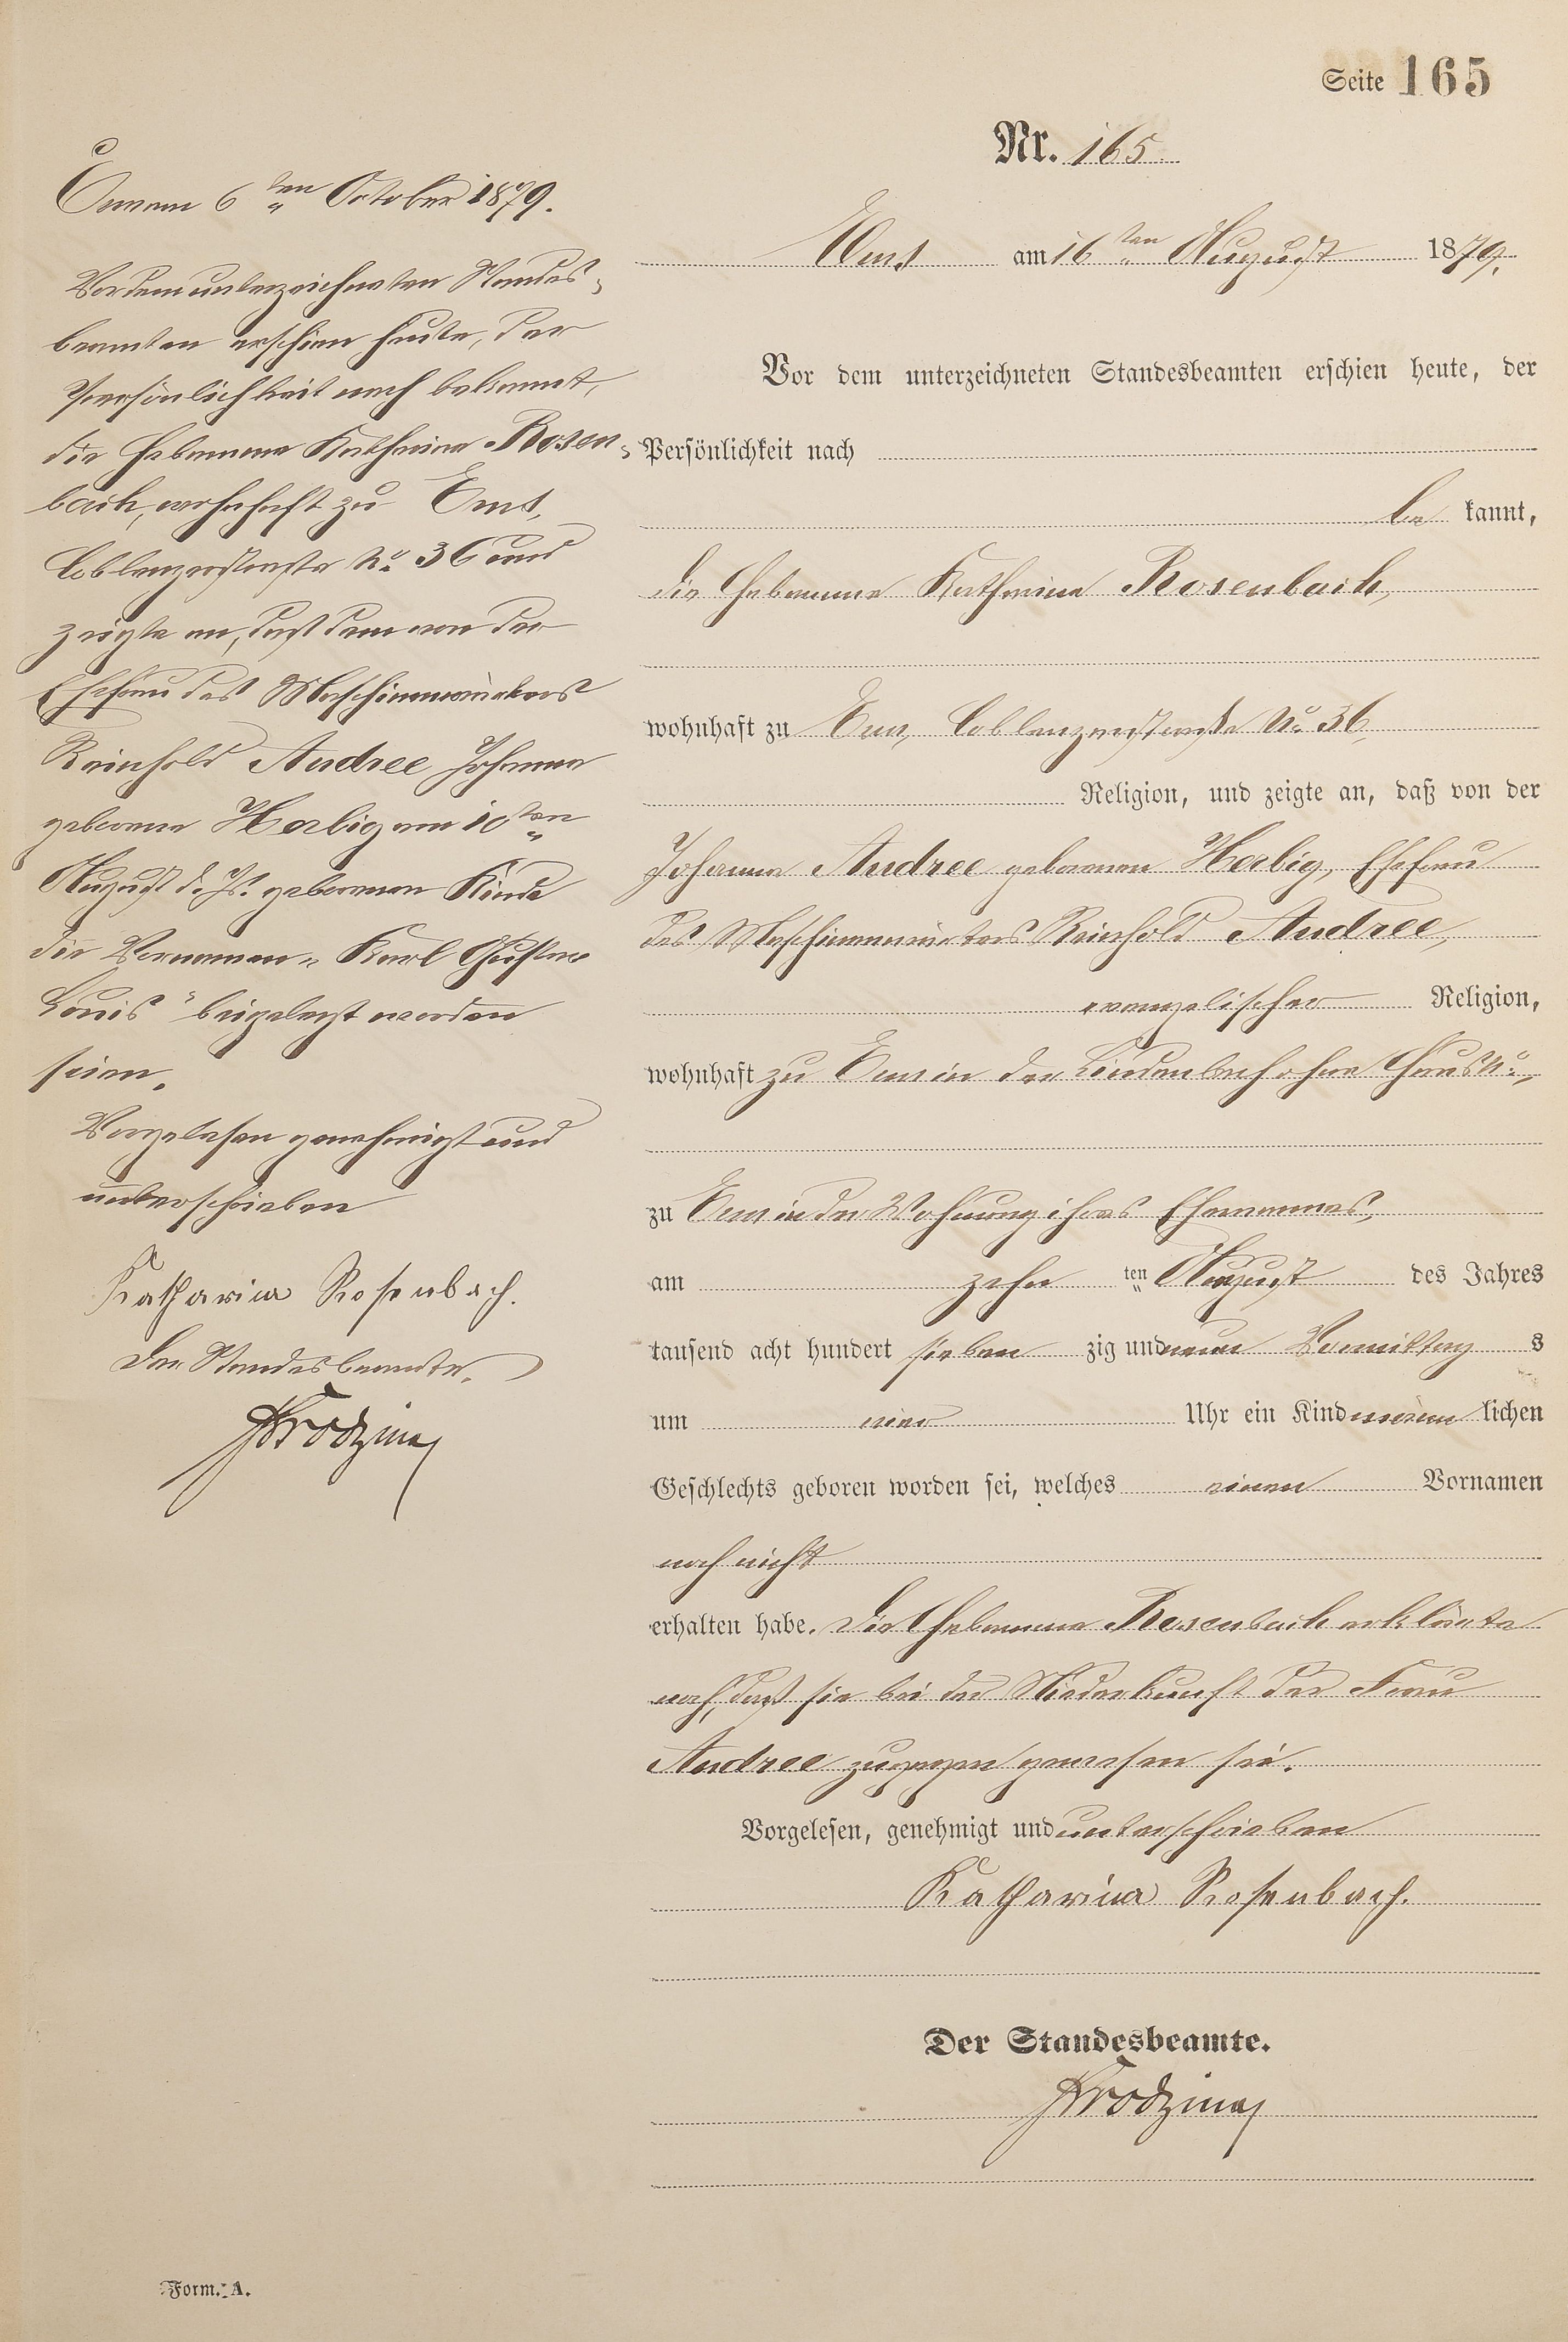 Seite 165
Nr. 165.
Ems am 16ten August 1879.
Vor dem unterzeichneten Standesbeamten erschien heute, der
Persönlichkeit nach
bekannt,
die Hebamme Katharina Rosenbach,
wohnhaft zu Ems, Coblenzerstraße No. 36,
Religion, und zeigte an, daß von der
Johanna Andree geborenen Herbig, Ehefrau
des Maschinenwärters Reinhold Andree,
evangelischer Religion,
wohnhaft zu Ems in der Lindenbach ohne Haus No.,
zu Ems in der Wohnung ihres Ehemannes,
am zehnten August des Jahres
tausend acht hundert siebenzig und neun Vormittags
um vier Uhr ein Kind männlichen
Geschlechts geboren worden sei, welches einen Vornamen
noch nicht
erhalten habe. Die Hebamme Rosenbach erklärte
noch, daß sie bei der Niederkunft der Frau
Andree zugegen gewesen sei.
Vorgelesen, genehmigt und unterschrieben
Katharina Rosenbach.
Der Standesbeamte.
Ems am 6ten October 1879.
Vor dem unterzeichneten Standes-
beamten erschien heute, der
Persönlichkeit nach bekannt,
die Hebamme Katharina Rosen-
bach, wohnhaft zu Ems,
Coblenzerstraße No. 36 und
zeigte an, daß dem von der
Ehefrau des Maschinenwärters
Reinhold Andree Johanna
geborene Herbig am 10ten
August d. Js. geborenen Kinde
die Vornamen „Karl Gustav
Louis" beigelegt worden
seien.
Vorgelesen genehmigt und
unterschrieben
Katharina Rosenbach.
Der Standesbeamte.
Form. A.